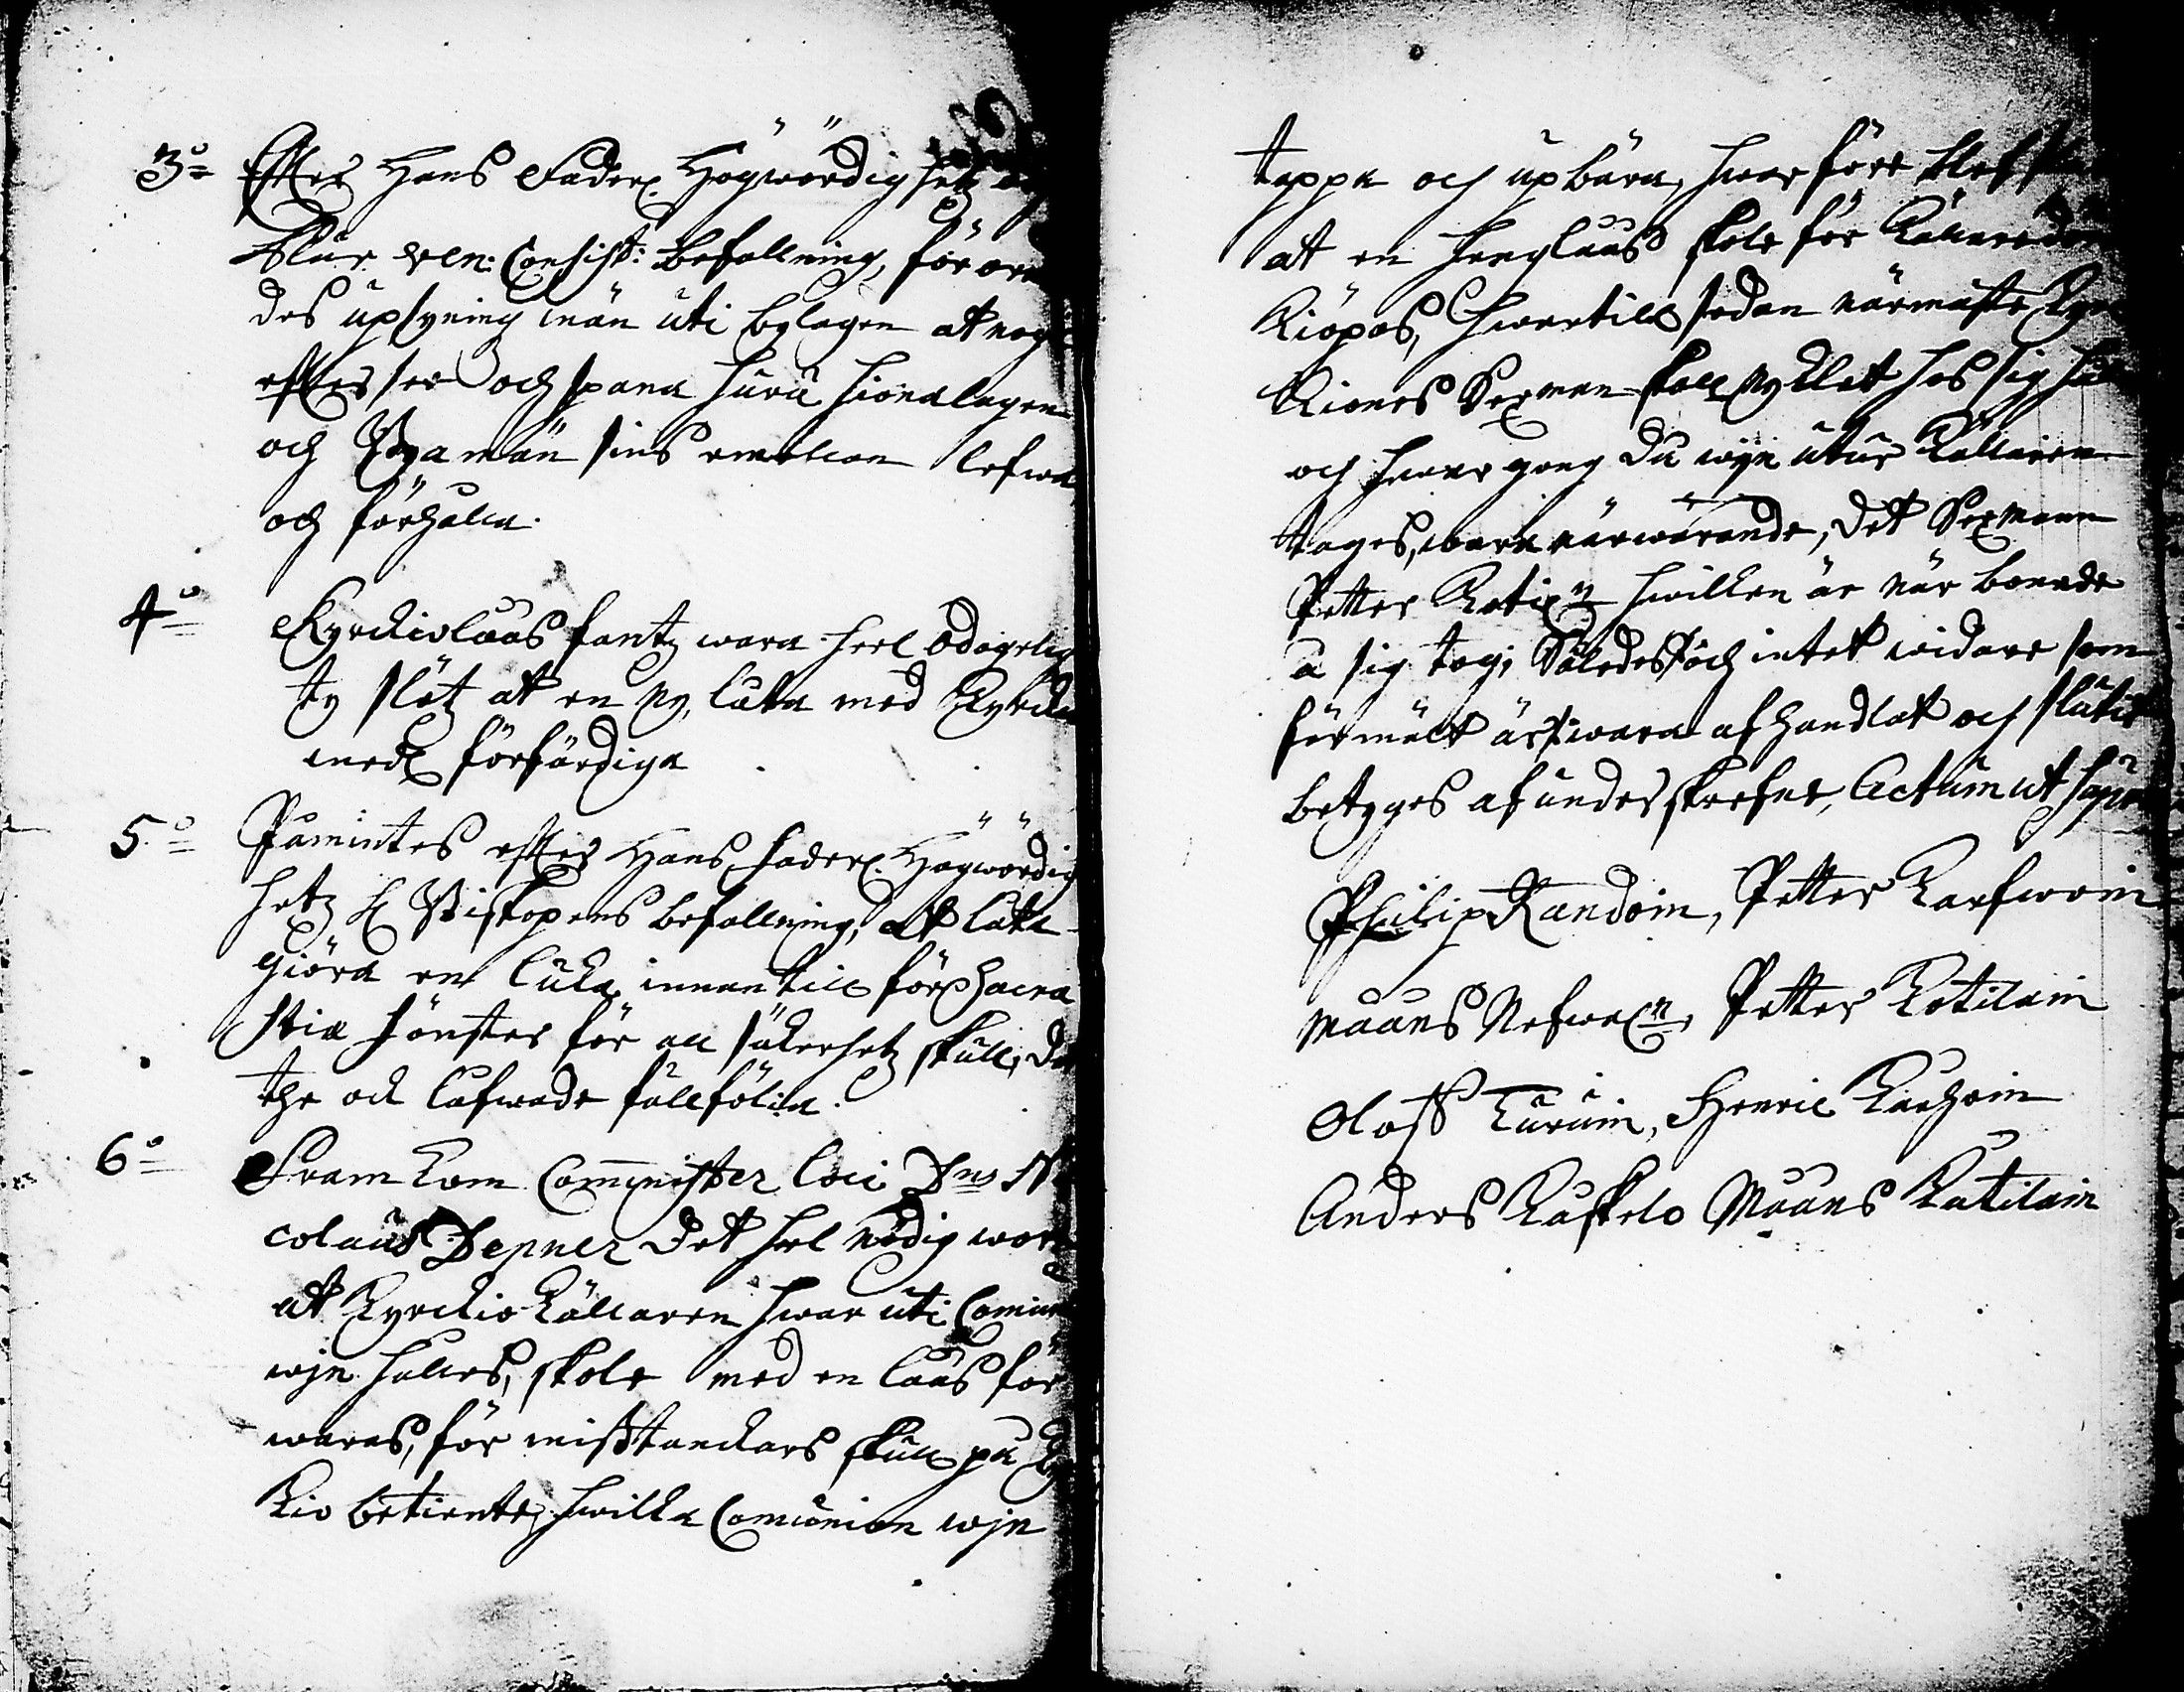 3:o Effter Hans Faderl Högwördighetz
Plur ven: Consist: Befallning, förord
des upsyning män uti bylagen at noga
effter see och spana huru hionalagen
och Byamän sins emellan lefwa
och förhålla.
4:o Kyrckiolåås fantz wara heel odogelig
ty slötz at en ny, låta med Kyrckio
medl förfärdiga
5:o Påmintes effter Hans Faderl: Högwördig
hetz H Biskopens befallning, at låta
giöra en lucka innan till för Sacra
stiæ fönster för all säkerhetz skull, det
the och lofwade fullfölia.
6:o Fram kom Comminister loci Dns Ni
colaus Depner det heel nödig wara
at Kyrckio källaren hwar uti Comun
wjn hålles, skole med en låås för
waras, för misstanckars skull på Kyr
kio betiente, hwilka Comunion wjn
tappa och upbära, hwarföre blef
at en henglåås skole för källaredören
Kiöpas, hwartill sedan närmaste Kyr
Kiones Sexman skall nycklet hos sig hafwa
och hwar gong då wijn utur källaren
tages, wara närwarande, det Sexmann
Petter Kotiln hwilken är när boende
å sig tog; Således och intet widare som
förmält är wara afhandlat och slutit
betyges af underskrefne, Actum ut supra
Philip Randoin, Petter Karfwoin
Måns Nefwaln, Petter Kotilain
Oloff Kuruin, Henric Karhoin
Anders Kaskelo Måns Kotilain